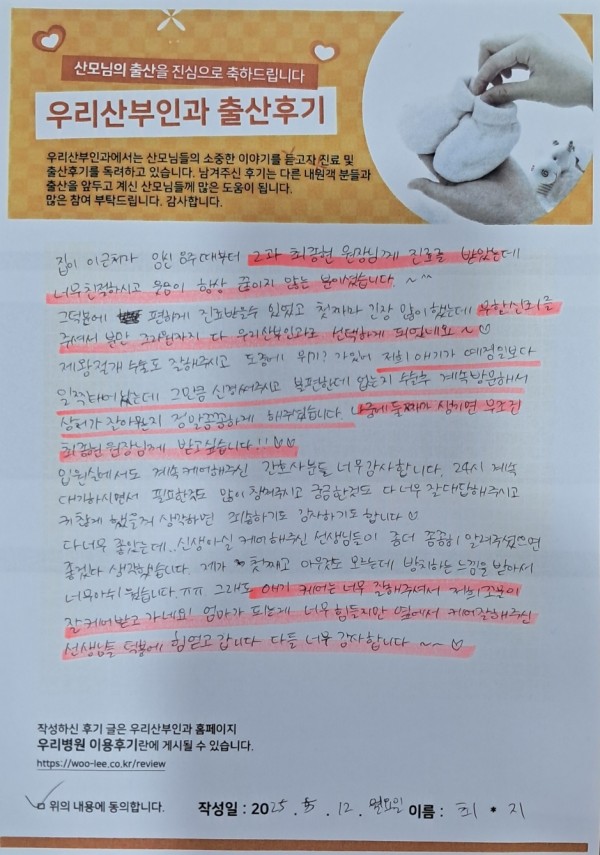 산모님의 출산을 진심으로 축하드립니다
우리산부인과 출산후기
우리산부인과에서는 산모님들의 소중한 이야기를 듣고자 진료 및
출산후기를 독려하고 있습니다. 남겨주신 후기는 다른 내원객 분들과
출산을 앞두고 계신 산모님들께 많은 도움이 됩니다.
많은 참여 부탁드립니다. 감사합니다.
집이 이근처라 임신 때부터 2과 최종현 원장님께 진료를 받았는데
너무친절하시고 웃음이 항상 끊이지 않는 분이셨습니다. ~ ^^
그덕분에 편하게 진료받을수 있었고 첫째라 긴장 많이했는데 무한신뢰를
주셔서 분만 그리고까지 다 우리산부인과로 선택하게 되었네요 ~ ♡
제왕절개 수술도 잘해주시고 도중에 위기? 가있어 저희 애기가 예정일보다
일찍태어났는데 그만큼 신경써주시고 불편한데 없는지 수술후 계속방문해서
상처가 잘아문지 정말꼼꼼하게 해주셨습니다. 나중에 둘째가 생기면 무조건
최종현원장님께 받고싶습니다!! ♡♡
입원실에서도 계속케어해주신 간호사분들 너무감사합니다. 24시 계속
대기하시면서 필요한것도 많이 챙겨주시고 궁금한것도 다 너무 잘대답해주시고
귀찮게 했을걸 생각하면 죄송하기도 감사하기도합니다 ♡
다너무 좋았는데.. 신생아실 케어해주신 선생님들이 좀더 꼼꼼히 알려주셨으면
좋겠다 생각했습니다. 제가 첫째고 아무것도 모르는데 방치하는 느낌을 받아서
너무아쉬웠습니다.ㅠㅠ 그래도 애기 케어는 너무 잘해주셔서 저희조은이
잘케어받고 가네요! 엄마가 되는게 너무 힘들지만 옆에서 케어잘해주신
선생님들 덕분에 힘얻고 갑니다 다들 너무 감사합니다 ~~ ♡
작성하신 후기 글은 우리산부인과 홈페이지
우리병원 이용후기란에 게시될 수 있습니다.
https://woo-lee.co.kr/review
위의 내용에 동의합니다.
작성일 : 2025 . 5 . 12 . 월요일 이름 : 최 * 지